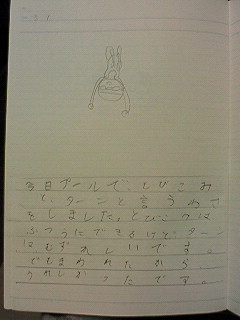 今日プールで、とびこみ
と、ターンと言うわざ
をしました。とびこみは
ふつうにできるけど、ター
はむずかしいです。
でもほめれたから
うれしかったです。